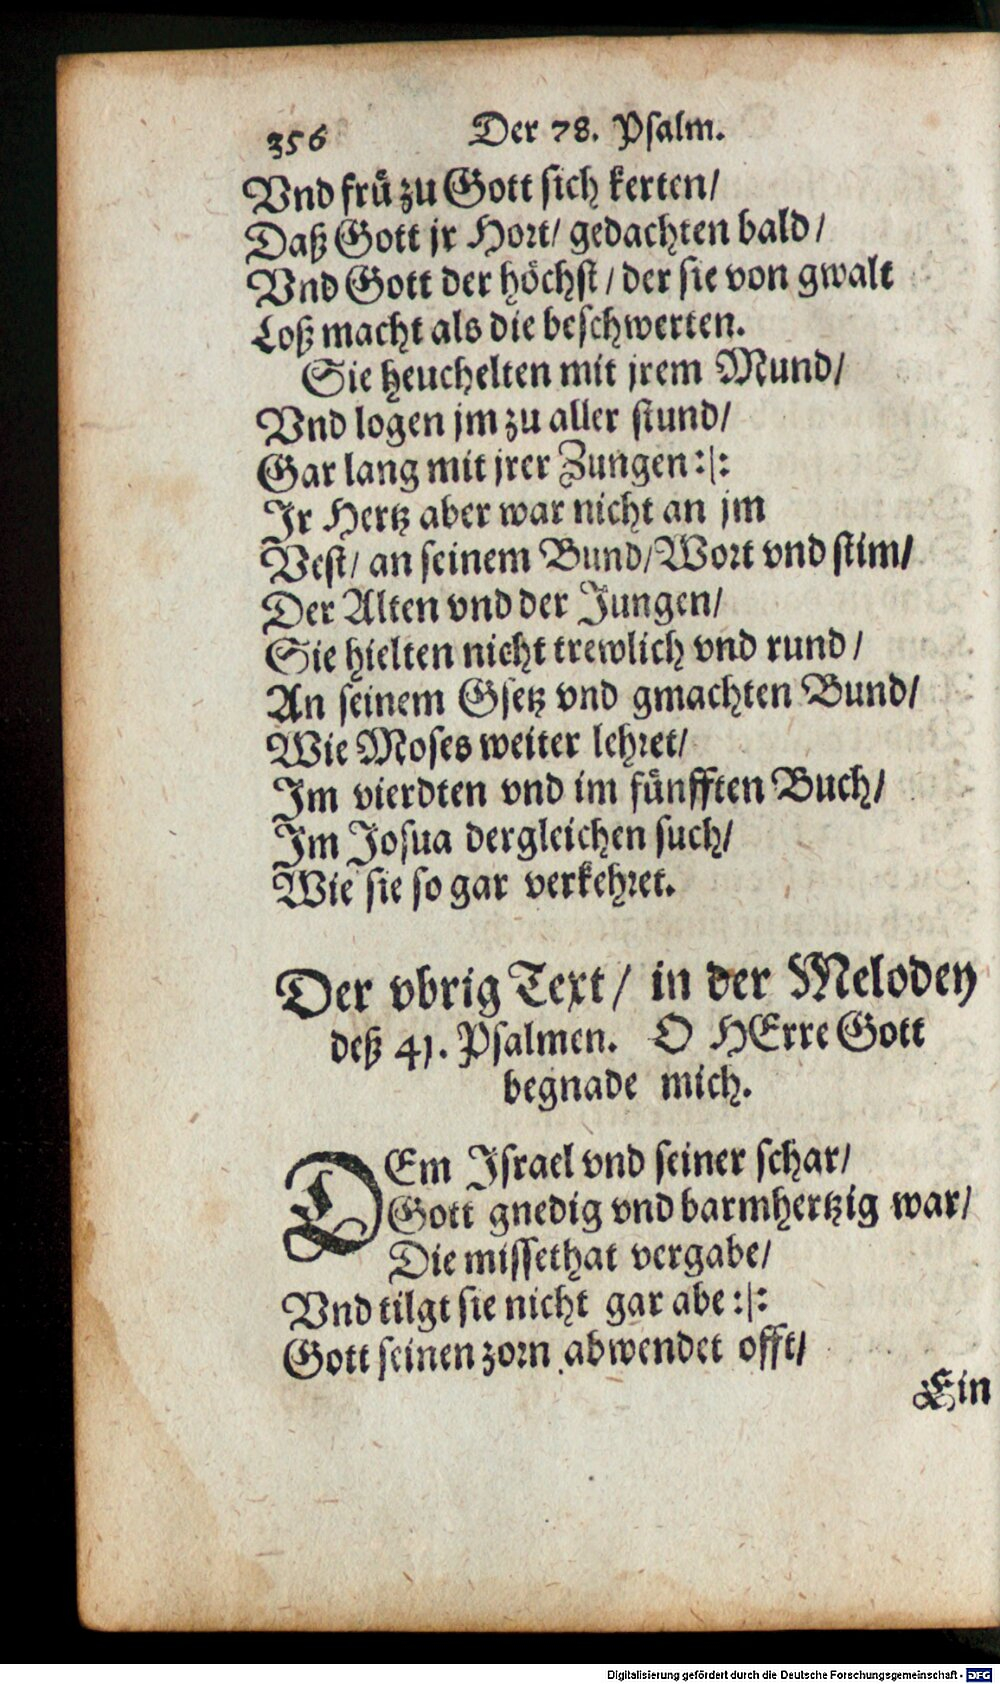 356 Der 78. Psalm.
Vnd frü zu Gott sich kerten/
Daß Gott jr Hort/ gedachten bald/
Vnd Gott der höchst/ der sie von gwalt
Loß macht als die beschwerten.
Sie heuchelten mit jrem Mund/
Vnd logen jm zu aller stund/
Gar lang mit jrer Zungen :|:
Jr Hertz aber war nicht an jm
Vest/ an seinem Bund/ Wort vnd stim/
Der Alten vnd der Jungen/
Sie hielten nicht trewlich vnd rund/
An seinem Gsetz vnd gmachten Bund/
Wie Moses weiter lehret/
Im vierdten vnd im fünfften Buch/
Im Josua dergleichen such/
Wie sie so gar verkehret.
Der vbrig Text/ in der Melodey
deß 41. Psalmen. O HErre Gott
begnade mich.
DEm Israel vnd seiner schar/
Gott gnedig vnd barmhertzig war/
Die missethat vergabe/
Vnd tilgt sie nicht gar abe :|:
Gott seinen zorn abwendet offt/
Ein
Digitalisierung gefördert durch die Deutsche Forschungsgemeinschaft - DFG